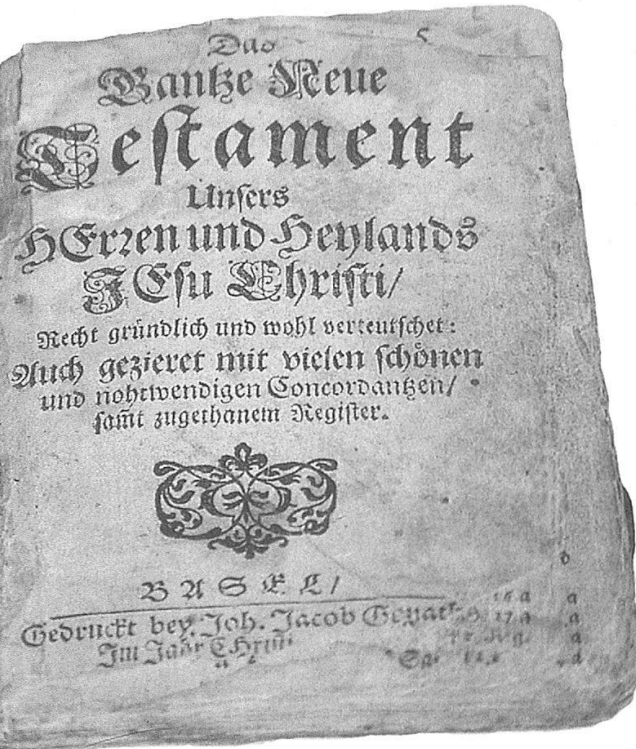 Das
Gantze Neue
Testament
Unsers
HErren und Heylands
JEsu Christi/
Recht gründlich und wohl verteutschet:
Auch gezieret mit vielen schönen
und nohtwendigen Concordantzen/
sam̃t zugethanem Register.
BASEL/
Gedruckt bey Joh. Jacob
Im Jahr